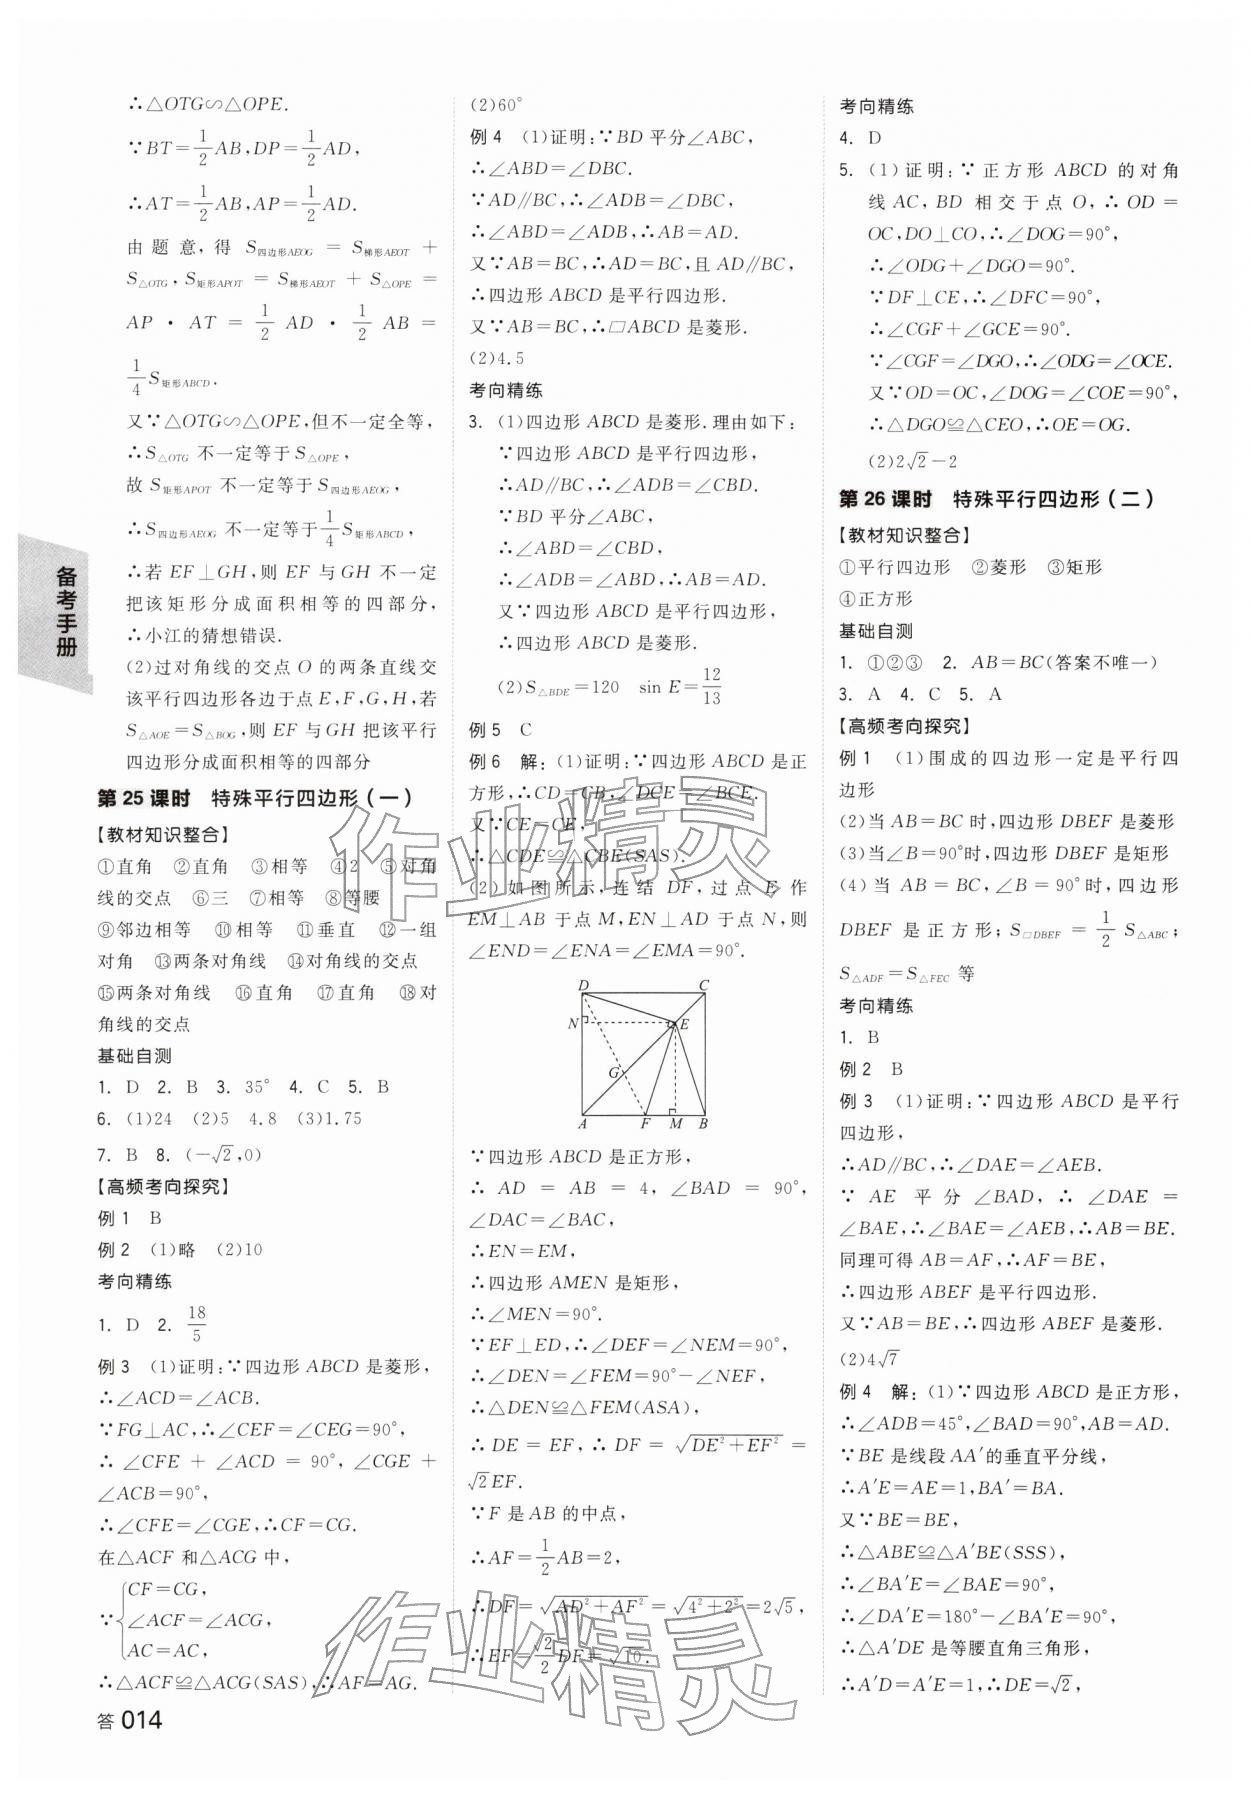 ∴△OTG∽△OPE.
∵BT=1/2AB,DP=1/2AD,
∴AT=1/2AB,AP=1/2AD.
由题意,得 S四边形AEOG = S梯形AEOT +
S△OTG,S矩形APOT = S梯形AEOT + S△OPE =
AP·AT=1/2AD·1/2AB=
1/4S矩形ABCD.
又∵△OTG∽△OPE,但不一定全等,
∴S△OTG 不一定等于 S△OPE,
故 S矩形APOT 不一定等于 S四边形AEOG,
∴S四边形AEOG 不一定等于1/4S矩形ABCD,
∴若 EF⊥GH,则 EF 与 GH 不一定
把该矩形分成面积相等的四部分,
∴小江的猜想错误.
(2)过对角线的交点 O 的两条直线交
该平行四边形各边于点 E,F,G,H,若
S△AOE=S△BOG,则 EF 与 GH 把该平行
四边形分成面积相等的四部分
第 25 课时 特殊平行四边形(一)
【教材知识整合】
①直角 ②直角 ③相等 ④2 ⑤对角
线的交点 ⑥三 ⑦相等 ⑧等腰
⑨邻边相等 ⑩相等 ⑪垂直 ⑫一组
对角 ⑬两条对角线 ⑭对角线的交点
⑮两条对角线 ⑯直角 ⑰直角 ⑱对
角线的交点
基础自测
1. D 2. B 3. 35° 4. C 5. B
6. (1)24 (2)5 4.8 (3)1.75
7. B 8. (−√2,0)
【高频考向探究】
例 1 B
例 2 (1)略 (2)10
考向精练
1. D 2. 18/5
例 3 (1)证明:∵四边形 ABCD 是菱形,
∴∠ACD=∠ACB.
∵FG⊥AC,∴∠CEF=∠CEG=90°,
∴ ∠CFE + ∠ACD = 90°, ∠CGE +
∠ACB=90°,
∴∠CFE=∠CGE,∴CF=CG.
在△ACF 和△ACG 中,
∵{CF=CG,
∠ACF=∠ACG,
AC=AC,
∴△ACF≌△ACG(SAS),∴AF=AG.
答 014
备考手册
(2)60°
例 4 (1)证明:∵BD 平分∠ABC,
∴∠ABD=∠DBC.
∵AD∥BC,∴∠ADB=∠DBC,
∴∠ABD=∠ADB,∴AB=AD.
又∵AB=BC,∴AD=BC,且 AD∥BC,
∴四边形 ABCD 是平行四边形.
又∵AB=BC,∴□ABCD 是菱形.
(2)4.5
考向精练
3. (1)四边形 ABCD 是菱形.理由如下:
∵四边形 ABCD 是平行四边形,
∴AD∥BC,∴∠ADB=∠CBD.
∵BD 平分∠ABC,
∴∠ABD=∠CBD,
∴∠ADB=∠ABD,∴AB=AD.
又∵四边形 ABCD 是平行四边形,
∴四边形 ABCD 是菱形.
(2)S△BDE=120 sin E=12/13
例 5 C
例 6 解:(1)证明:∵四边形 ABCD 是正
方形,∴CD=CB,∠DCE=∠BCE.
又∵CE=CE,
∴△CDE≌△CBE(SAS).
(2)如图所示,连结 DF,过点 E 作
EM⊥AB 于点 M,EN⊥AD 于点 N,则
∠END=∠ENA=∠EMA=90°.
D C
N E
G
A F M B
∵四边形 ABCD 是正方形,
∴ AD = AB = 4, ∠BAD = 90°,
∠DAC=∠BAC,
∴EN=EM,
∴四边形 AMEN 是矩形,
∴∠MEN=90°.
∵EF⊥ED,∴∠DEF=∠NEM=90°,
∴∠DEN=∠FEM=90°−∠NEF,
∴△DEN≌△FEM(ASA),
∴DE=EF,∴DF=√(DE²+EF²)=
√2EF.
∵F 是 AB 的中点,
∴AF=1/2AB=2,
∴DF=√(AD²+AF²)=√(4²+2²)=2√5,
∴EF=√2/2DF=√10.
考向精练
4. D
5. (1)证明:∵正方形 ABCD 的对角
线 AC,BD 相交于点 O,∴OD=
OC,DO⊥CO,∴∠DOG=90°,
∴∠ODG+∠DGO=90°.
∵DF⊥CE,∴∠DFC=90°,
∴∠CGF+∠GCE=90°.
∵∠CGF=∠DGO,∴∠ODG=∠OCE.
又∵OD=OC,∠DOG=∠COE=90°,
∴△DGO≌△CEO,∴OE=OG.
(2)2√2−2
第 26 课时 特殊平行四边形(二)
【教材知识整合】
①平行四边形 ②菱形 ③矩形
④正方形
基础自测
1. ①②③ 2. AB=BC(答案不唯一)
3. A 4. C 5. A
【高频考向探究】
例 1 (1)围成的四边形一定是平行四
边形
(2)当 AB=BC 时,四边形 DBEF 是菱形
(3)当∠B=90°时,四边形 DBEF 是矩形
(4)当 AB=BC,∠B=90°时,四边形
DBEF 是正方形;S□DBEF=1/2S△ABC;
S△ADF=S△FEC 等
考向精练
1. B
例 2 B
例 3 (1)证明:∵四边形 ABCD 是平行
四边形,
∴AD∥BC,∴∠DAE=∠AEB.
∵ AE 平分∠BAD,∴∠DAE =
∠BAE,∴∠BAE=∠AEB,∴AB=BE.
同理可得 AB=AF,∴AF=BE,
∴四边形 ABEF 是平行四边形.
又∵AB=BE,∴四边形 ABEF 是菱形.
(2)4√7
例 4 解:(1)∵四边形 ABCD 是正方形,
∴∠ADB=45°,∠BAD=90°,AB=AD.
∵BE 是线段 AA′的垂直平分线,
∴A′E=AE=1,BA′=BA.
又∵BE=BE,
∴△ABE≌△A′BE(SSS),
∴∠BA′E=∠BAE=90°,
∴∠DA′E=180°−∠BA′E=90°,
∴△A′DE 是等腰直角三角形,
∴A′D=A′E=1,∴DE=√2,
作业精灵
作业精灵